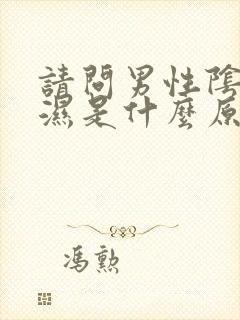 請問男性陰
濕是什麼原
馮勲